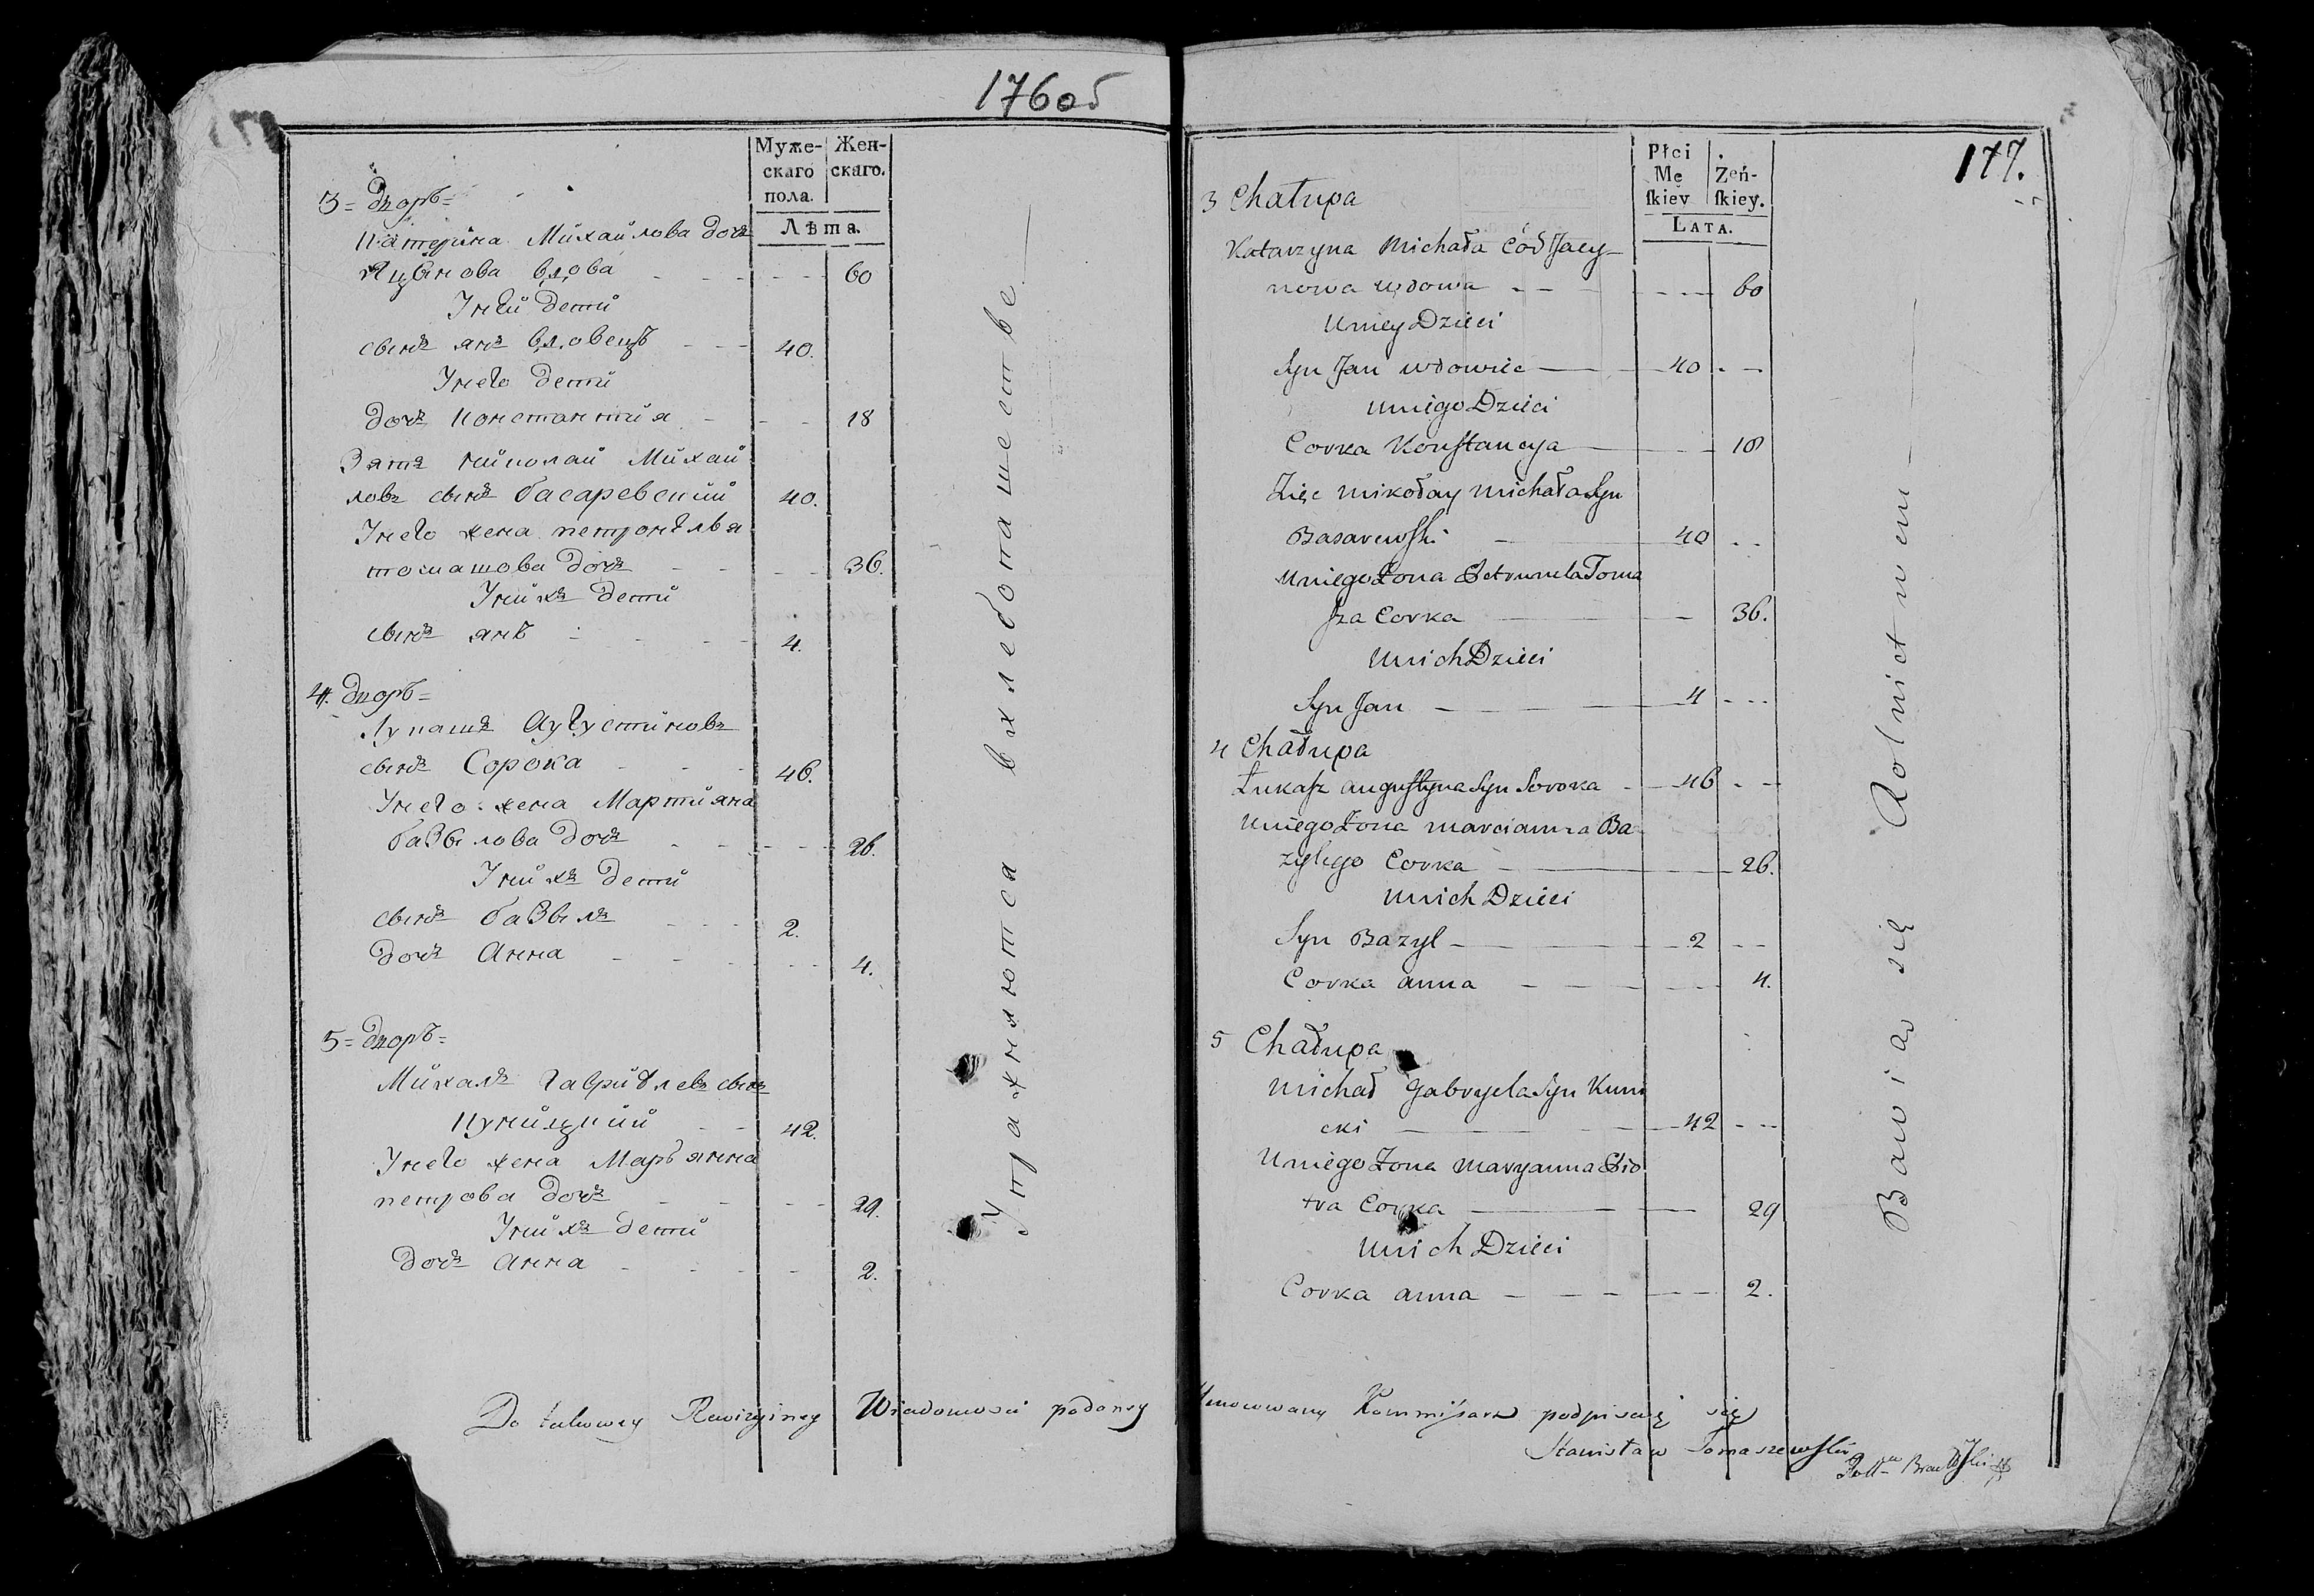 176об
Муже-
скаго
пола.
Жен-
скаго.
Лѣта.
3= дворъ=
Катерина Михайлова дочь
Яцынова вдова 60
У ней дети
сынъ янъ вдовецъ 40.
У него дети
дочь константия 18
Зять николай Михай
ловъ сынъ басаревский 40.
У него жена петронеля
томашова дочь 36.
У нихъ дети
сынъ янъ 4.
4. дворъ=
Лукашъ Аугустиновъ
сынъ Сорока 46.
У него жена Мартияна
базылова дочь 26.
У нихъ дети
сынъ базыль 2.
дочь Анна 4.
5= дворъ=
Михалъ гавриелевъ сынъ
куницкий 42.
У него жена Марьянна
петрова дочь 29.
У нихъ дети
дочь анна 2.
Упражняются в хлебопашестве
Do takowey Rewizyiney Wiadomosci podaney
177.
Płci
Mę
skiey
Żeń-
skiey.
LATA.
3 Chałupa
Katarzyna Michała Cór Jacy
nowa wdowa 60
U niey Dzieci
Syn Jan wdowiec 40
U niego Dzieci
Corka Konstancya 18
Zięc Mikołay Michała Syn
Basarewski 40
U niego Żona Petrunela Toma
sza Corka 36.
U nich Dzieci
Syn Jan 4
4 Chałupa
Łukasz Augustyna Syn Soroka 46
U niego Żona Marcianna Ba
zylego Corka 26.
U nich Dzieci
Syn Bazyl 2
Corka Anna 4.
5 Chałupa
Michał Gabryela Syn Kuni
cki 42
U niego Żona Maryanna Pio
tra Corka 29
U nich Dzieci
Corka Anna 2.
Bawią się Rolnictwem
Kommisarz podpisuję się
Stanisław Tomaszewski